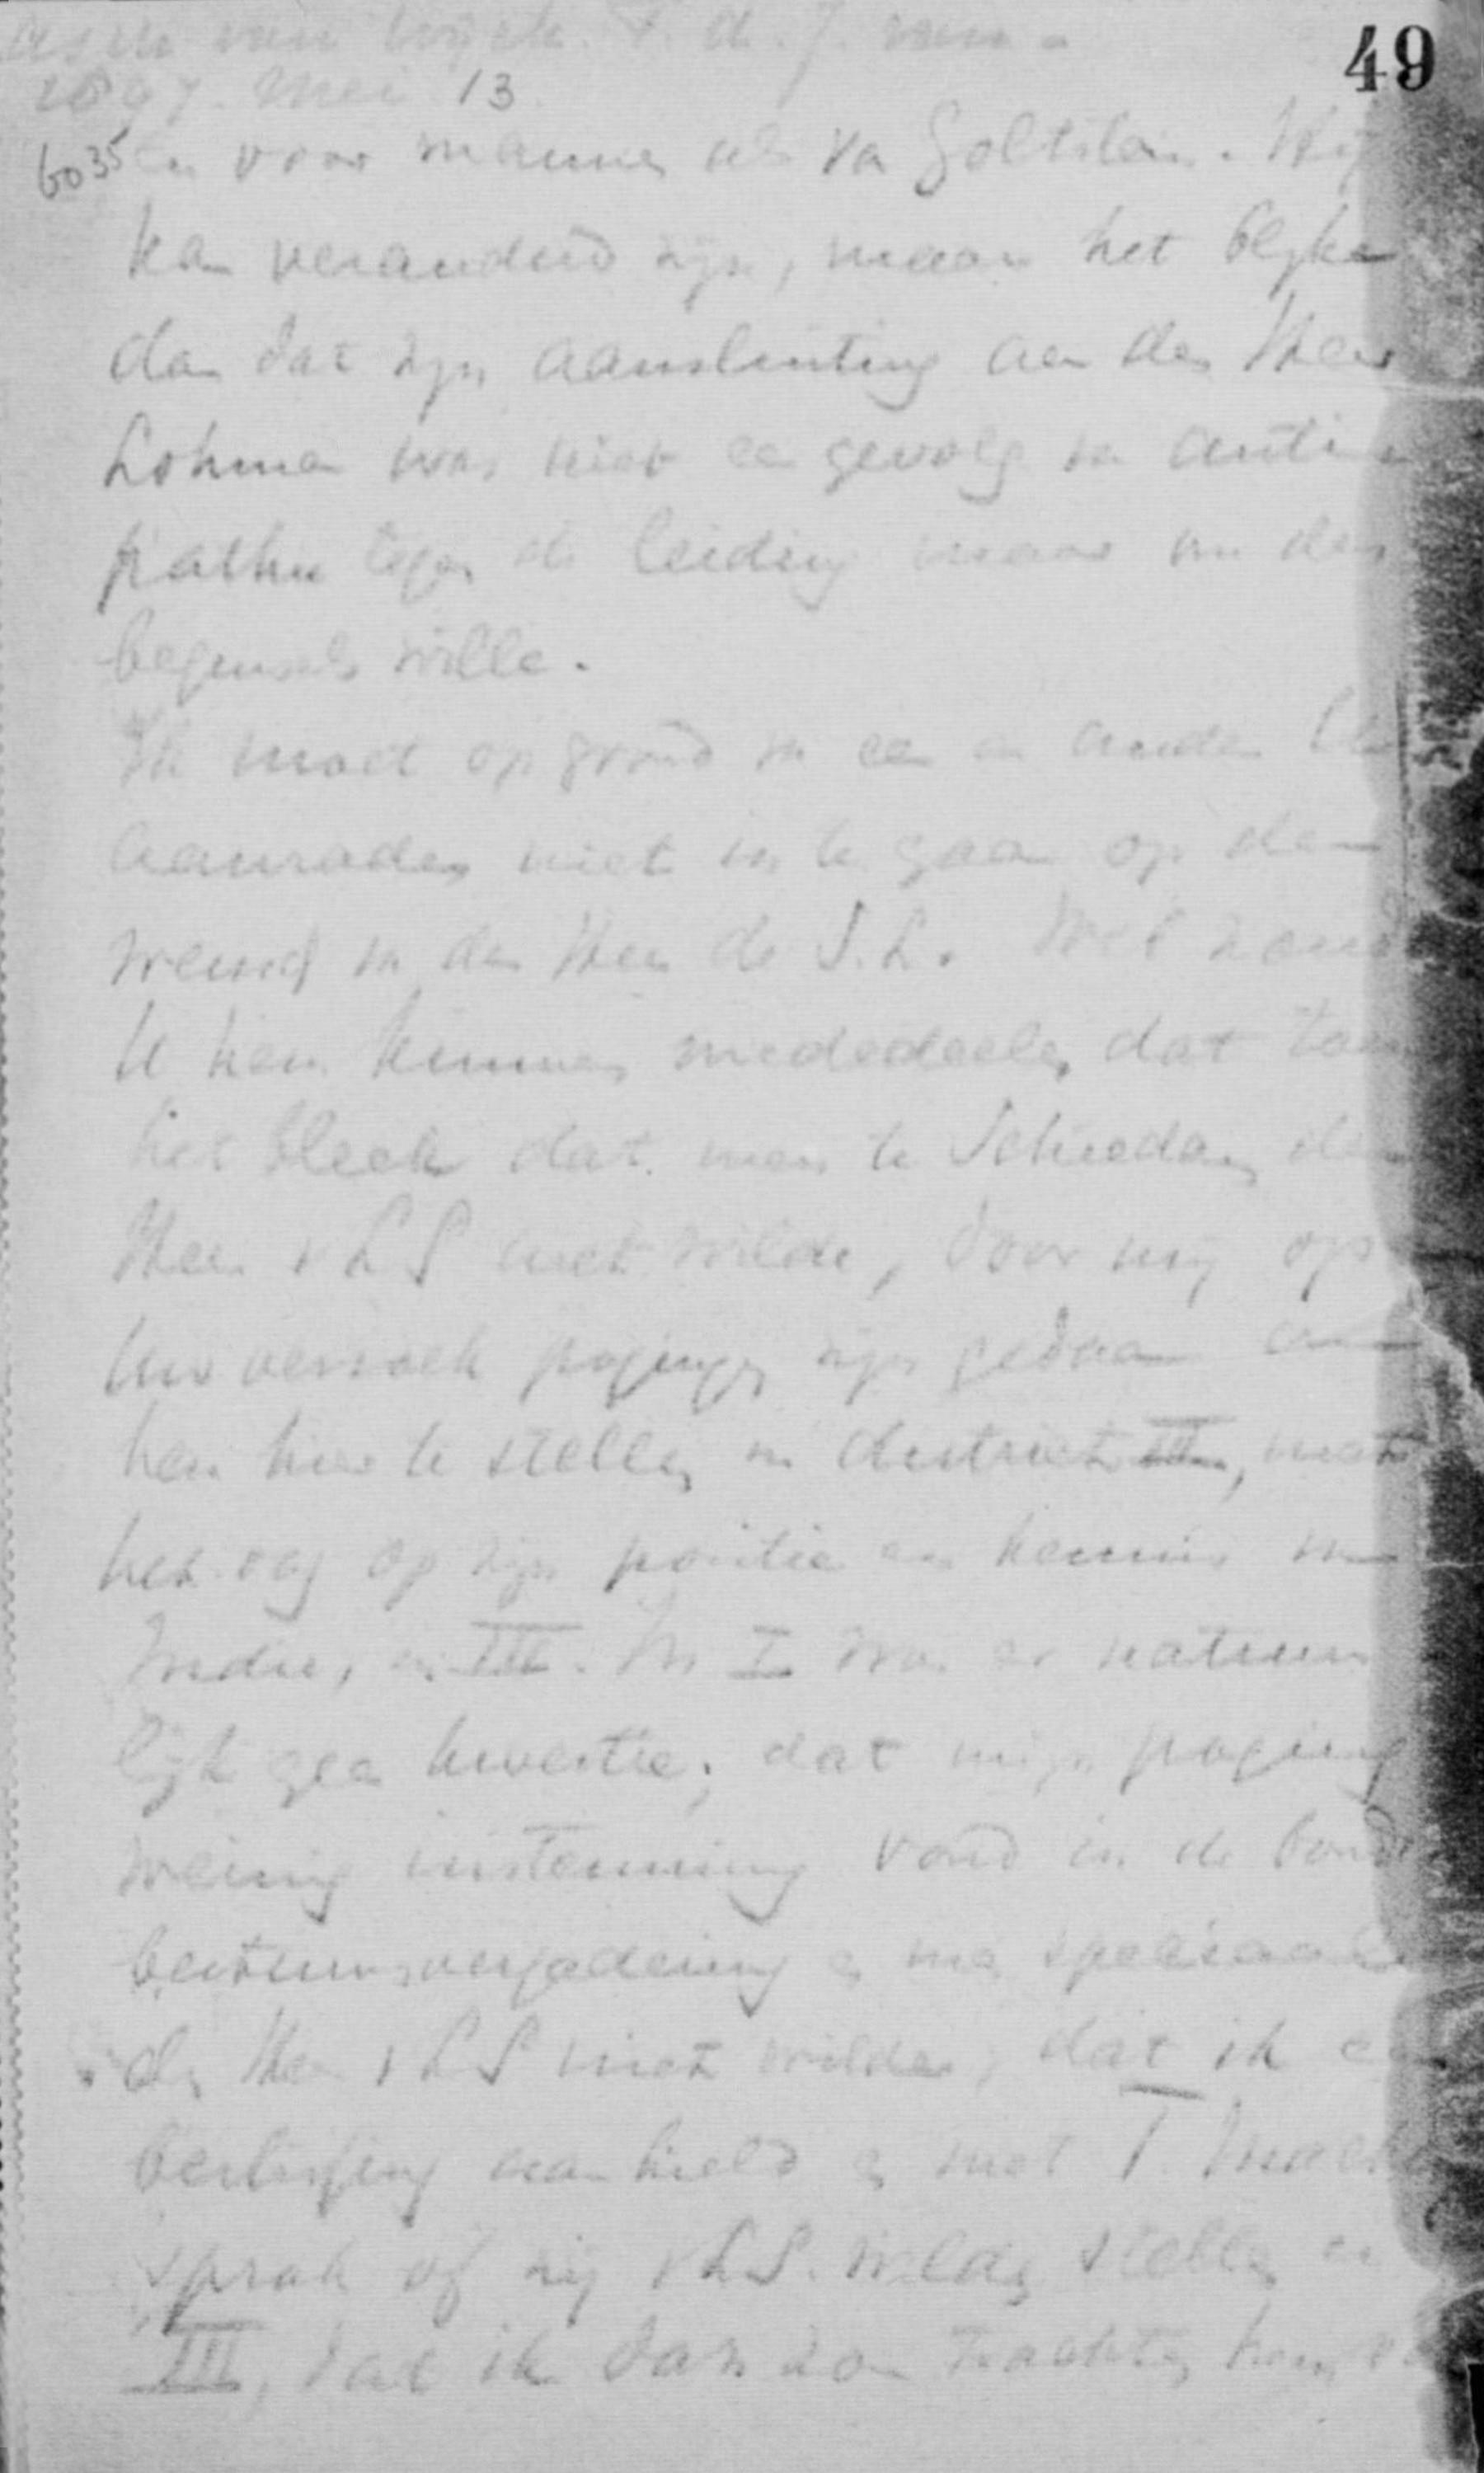 49
1897 Mei 13
6035 en voor mannen als va Goltstein. Hij
kan veranderd zijn, maar het blijke
dan dat zijn aansluiting aan den Heer
Lohman was niet een gevolg van anti-
pathie tegen de leiding maar om des
beginsels wille.
Ik moet op grond van een en ander
aanraden niet in te gaan op den
wensch van den Heer de S.L. Wel zoud
U hem kunnen mededeelen, dat toen
het bleek dat men te Schiedam den
Heer v L S niet wilde, door mij op
Uw verzoek pogingen zijn gedaan om
hem hier te stellen in district III, met
het oog op zijn positie en kennis van
Indië, in III. In I was er natuur
lijk geen kwestie; dat mijn poging
weinig instemming vond in de bonds
bestuursvergadering en men speciaal
den Heer v L S niet wilde; dat ik een
beslissing aanhield en met
sprak of zij v L S. wilden stellen in
III, dat ik dan zou trachten hem